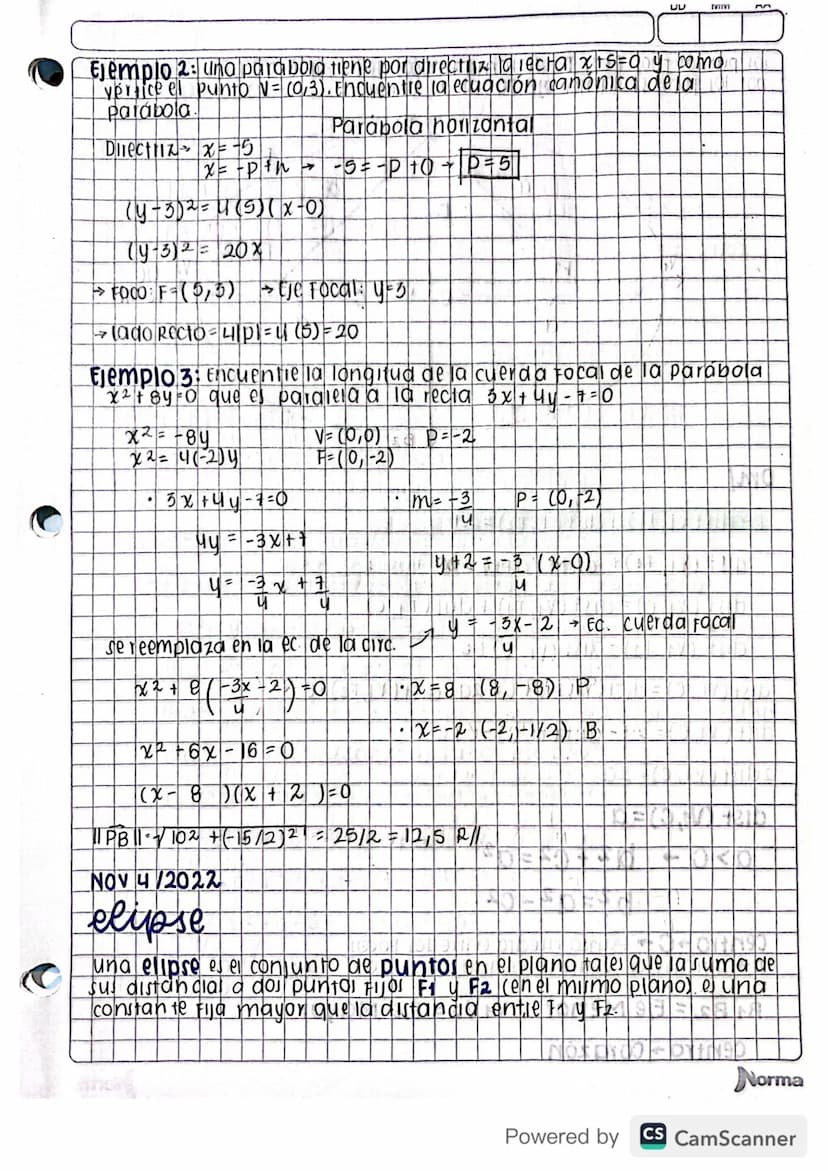 DD MM AA
Ejemplo 2: una parábola tiene por directriz la recta x+5=0 y como
vértice el punto V=(0,3). Encuentre la ecuación canónica de la
parábola.
Parábola horizontal
Directriz→ x=-5
x= -p+h → -5=-p+0 → p=5
(y-3)²=4(5)(x-0)
(y-3)²= 20x
→ Foco: F=(5,3) → Eje Focal: y=3
→ lado Recto=4|p|=4(5)=20
Ejemplo 3: Encuentre la longitud de la cuerda Focal de la parábola
x²+8y=0 que es paralela a la recta 3x+4y-7=0
x²= -8y V=(0,0) p=-2
x²= 4(-2)y F=(0,-2)
· 3x+4y-7=0 · m= -3/4 P= (0,-2)
4y = -3x+7
y+2 = -3/4 (x-0)
y= -3/4 x + 7/4
y = -3x/4 - 2 → Ec. cuerda Focal
se reemplaza en la ec. de la circ.
x² + 8(-3x/4 -2)=0 · x=8 (8,-8) P
· x=-2 (-2,-1/2) B
x² +6x -16=0
(x- 8 )(x + 2 )=0
||PB||=√10² +(-15/2)² = 25/2 = 12,5 R//
NOV 4/2022
elipse
una elipse es el conjunto de puntos en el plano tales que la suma de
sus distancial a dos puntos Fijos F1 y F2 (en el mismo plano). es una
constante Fija mayor que la distancia entre F1 y F2.
Norma
Powered by CS CamScanner